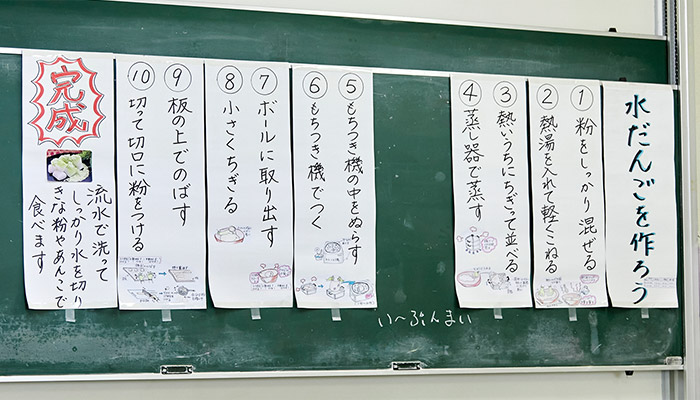 水だんごを作ろう
①粉をしっかり混ぜる
②熱湯を入れて軽くこねる
③熱いうちにちぎって並べる
④蒸し器で蒸す
い〜ぶんまい
⑤もちつき機の中をぬらす
⑥もちつき機でつく
⑦ボールに取り出す
⑧小さくちぎる
⑨板の上でのばす
⑩切って切口に粉をつける
完成
流水で洗って
しっかり水を切り
きな粉やあんこで
食べます